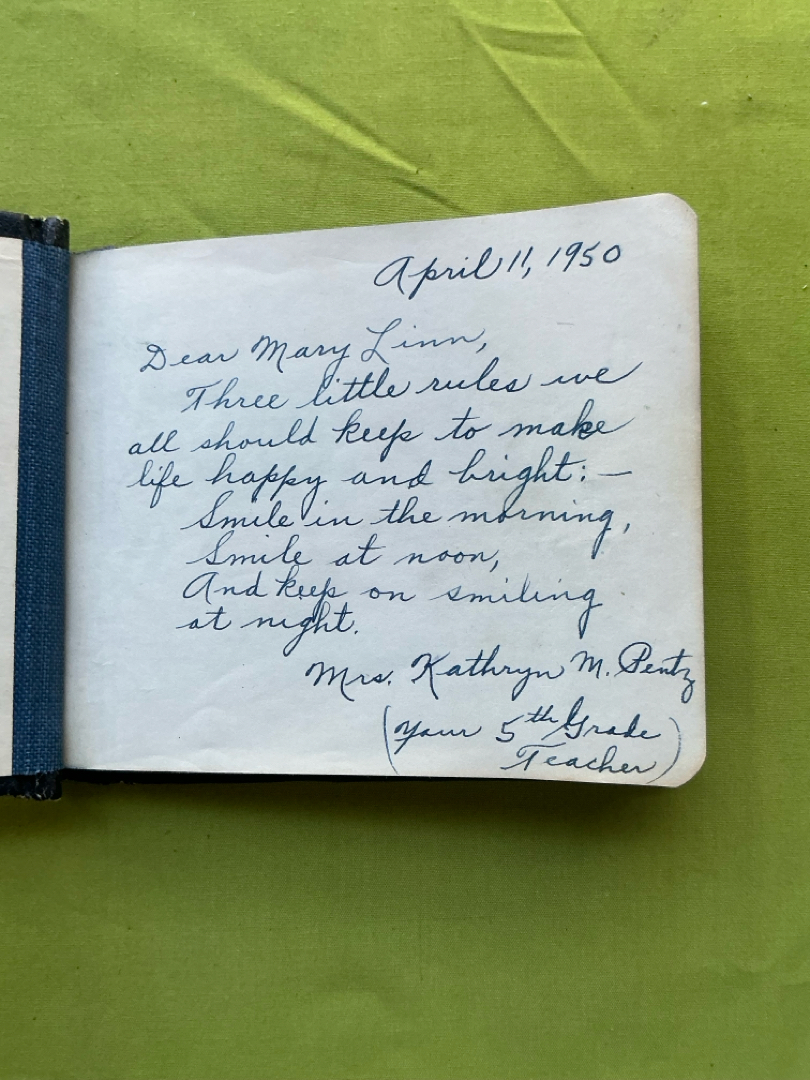 April 11, 1950
Dear Mary Linn,
Three little rules we
all should keep to make
life happy and bright:—
Smile in the morning,
Smile at noon,
And keep on smiling
at night.
Mrs. Kathryn M. Pentz
(Your 5th Grade
Teacher)